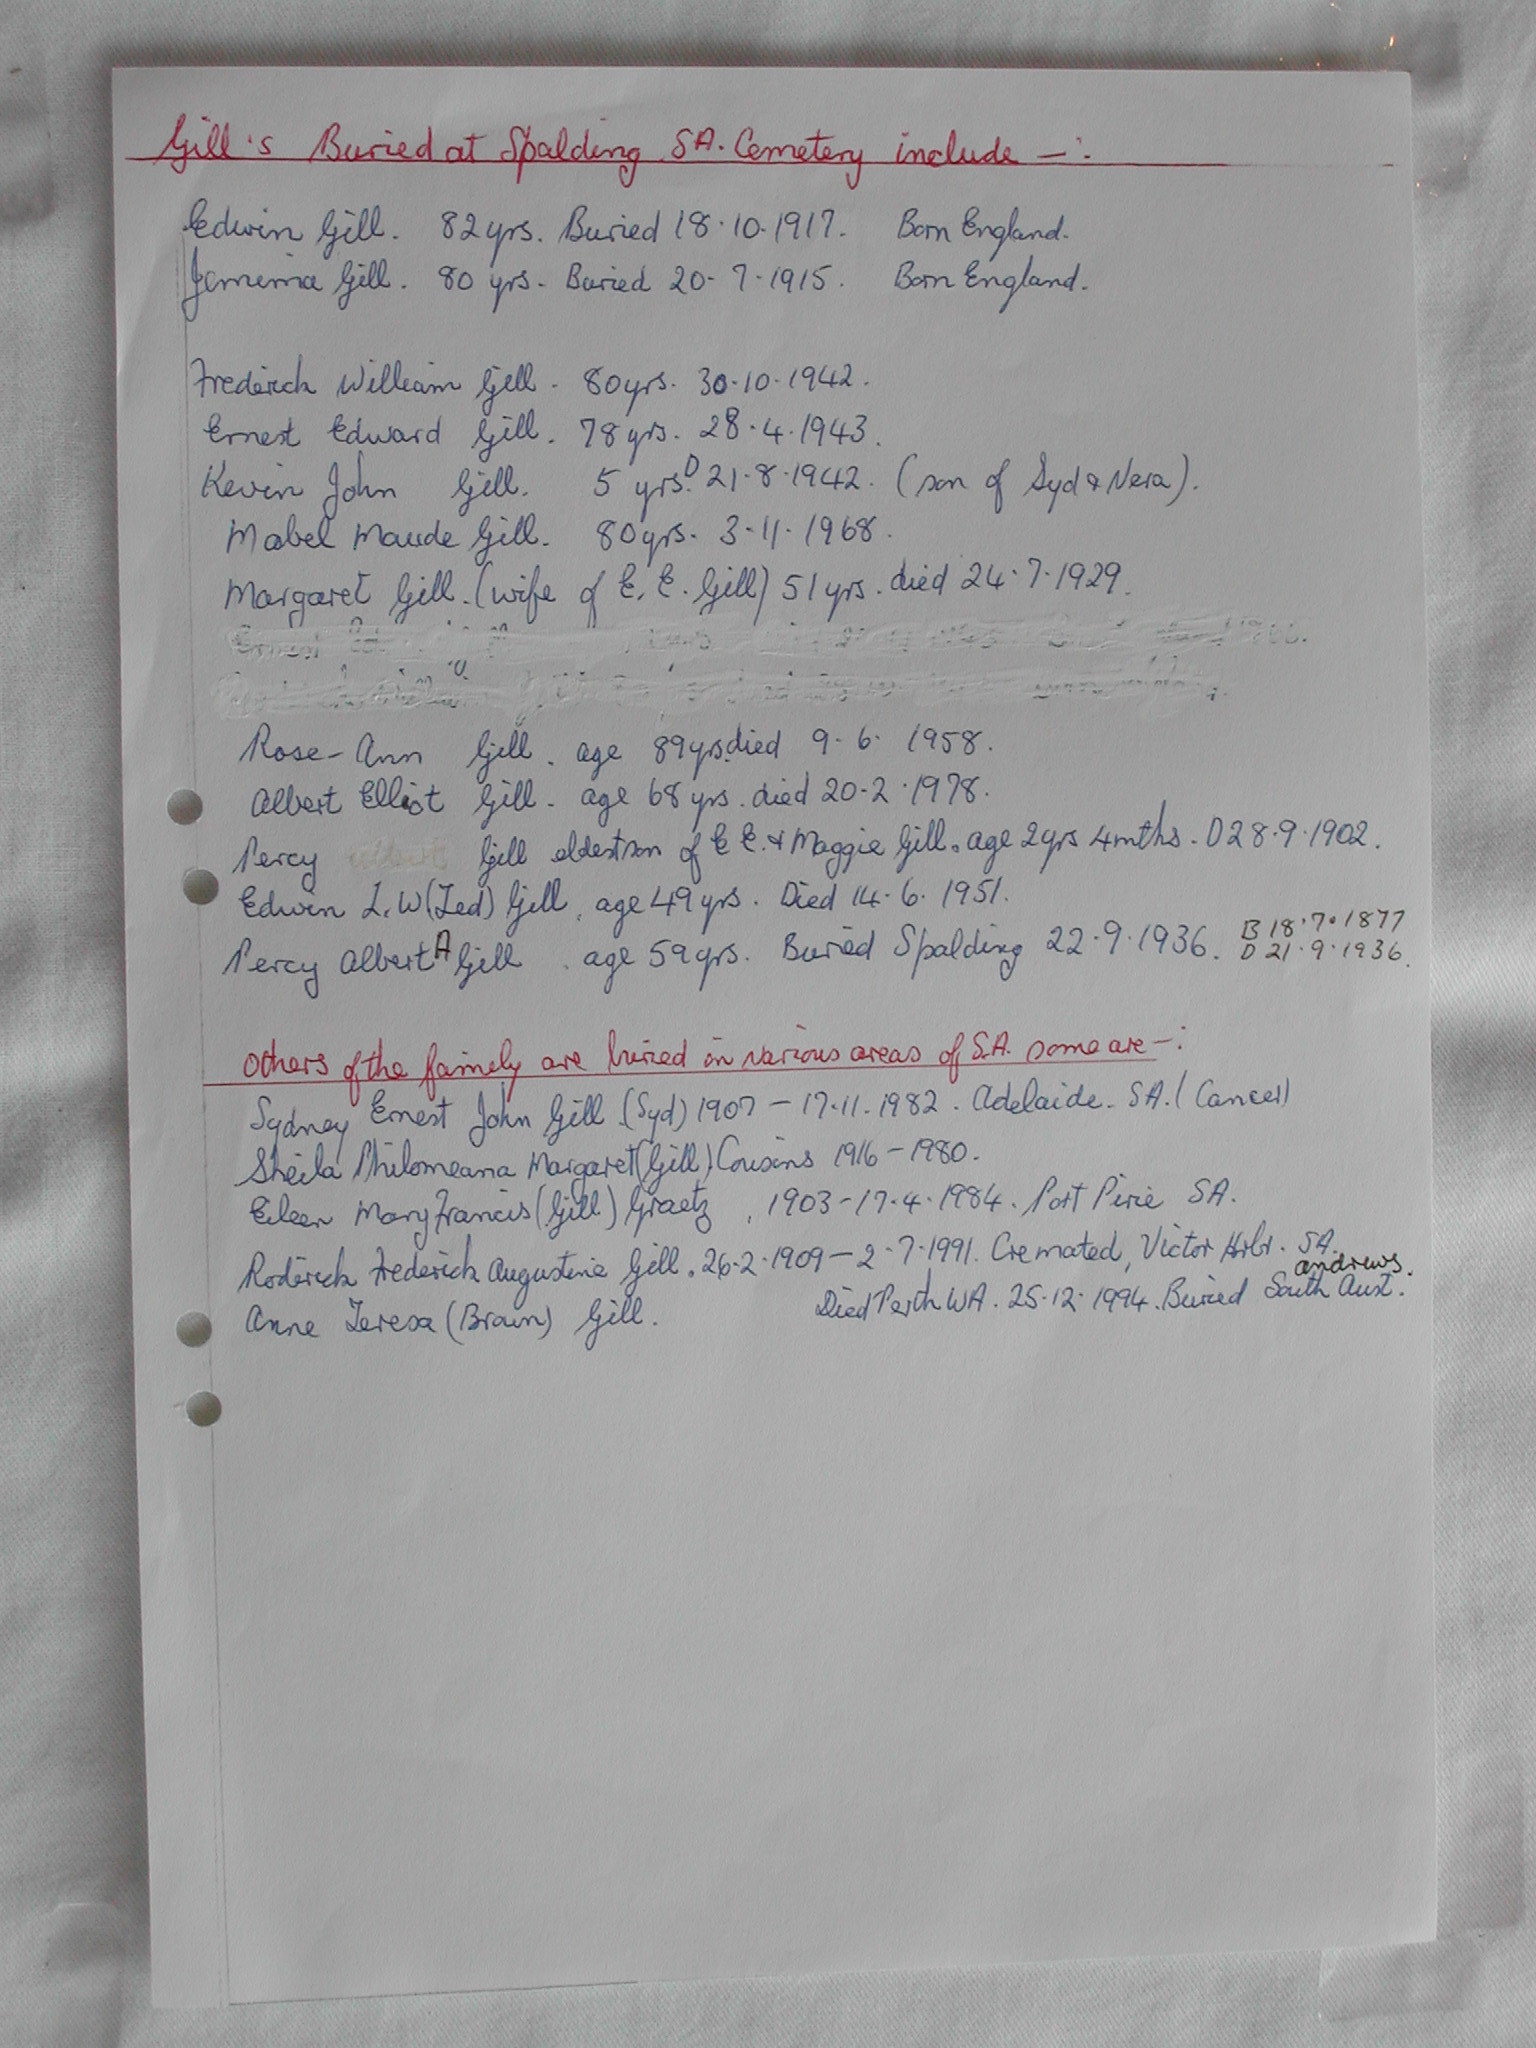 Gill's Buried at Spalding S.A. Cemetery include -:
Edwin Gill. 82 yrs. Buried 18.10.1917. Born England.
Jemima Gill. 80 yrs. Buried 20.7.1915. Born England.
Frederick William Gill. 80 yrs. 30.10.1942.
Ernest Edward Gill. 78 yrs. 28.4.1943.
Kevin John Gill. 5 yrs. D 21.8.1942. (son of Syd & Nera).
Mabel Maude Gill. 80 yrs. 3.11.1968.
Margaret Gill. (wife of E. E. Gill) 51 yrs. died 24.7.1929.
Rose-Ann Gill. age 89 yrs. died 9.6.1958.
Albert Elliot Gill. age 68 yrs. died 20.2.1978.
Percy Gill eldest son of E E. & Maggie Gill. age 2 yrs 4 mths. D 28.9.1902.
Edwin L. W (Ted) Gill. age 49 yrs. Died 14.6.1951.
Percy Albert A Gill. age 59 yrs. Buried Spalding 22.9.1936. B 18.7.1877
D 21.9.1936.
Others of the faimely are buried in various areas of S.A. some are -:
Sydney Ernest John Gill (Syd) 1907 - 17.11.1982. Adelaide. SA. (Cancer)
Sheila Philomeana Margaret (Gill) Cousins 1916 - 1980.
Eileen Mary Francis (Gill) Graetz, 1903 - 17.4.1984. Port Pirie SA.
Roderick Frederick Augustine Gill. 26.2.1909 - 2.7.1991. Cremated, Victor Hrbr. SA.
andrews.
Anne Teresa (Braun) Gill. Died Perth WA. 25.12.1994. Buried South Aust.